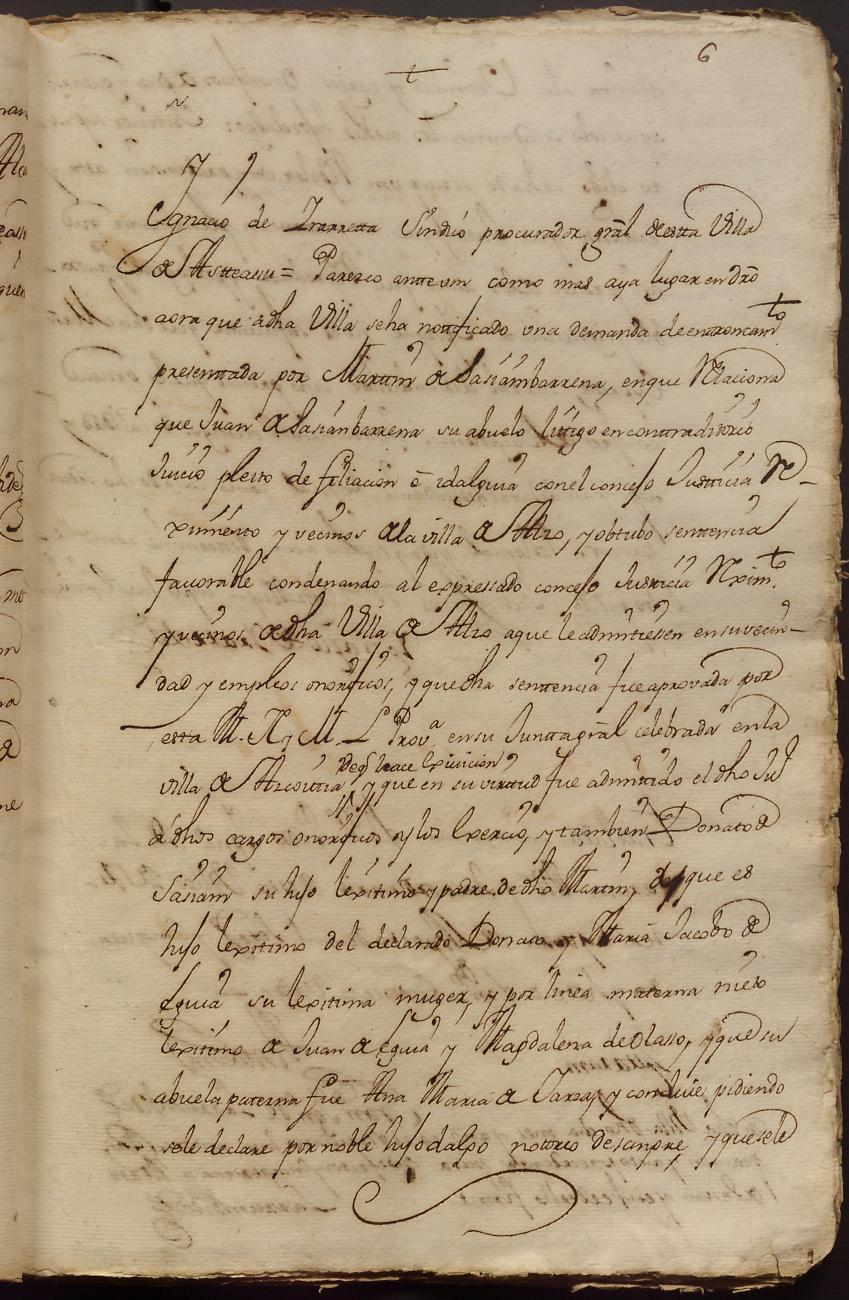 6
Ygnacio de Irarreta Sindico procurador gral deesta Villa
de Asteasu = Parezco ante vm como mas aya lugar en dro
aora que a dha Villa seha notificado vna demanda de entroncamto
presentada por Martin de Sasiambarrena, enque Relaciona
que Juan de Sasianbarrena su abuelo litigo en contraditorio
Juicio pleito de filiacion e idalguia conel concejo Justicia Re-
ximiento y vecinos de la villa de Alzo, y obtubo sentencia
favorable condenando al expressado concejo Justicia Reximto
y vecinos de dha Villa de Alzo aque le admitiesen en su vecin-
dad y empleos onorificos, y que dha sentencia fue aprovada por
esta M. N. y M. L. Prova en su Junta gral celebrada en la
de q hace Exivicion
villa de Azcoitia y que en su virtud fue admitido el dho Jun
a dhos cargos onorificos y los Exercio, y tambien Donato de
Sasiain su hijo lexitimo y padre de dho Martin, y que es
hijo lexitimo del declarado Donato y Maria Jacobo de
Eguia su lexitima muger, y por linea materna nieto
lexitimo de Juan de Eguia y Magdalena de Olasso, y que su
abuela paterna fue Ana Maria de Zarra, y concluie pidiendo
sele declare por noble hijodalgo notorio de sangre, y que sele